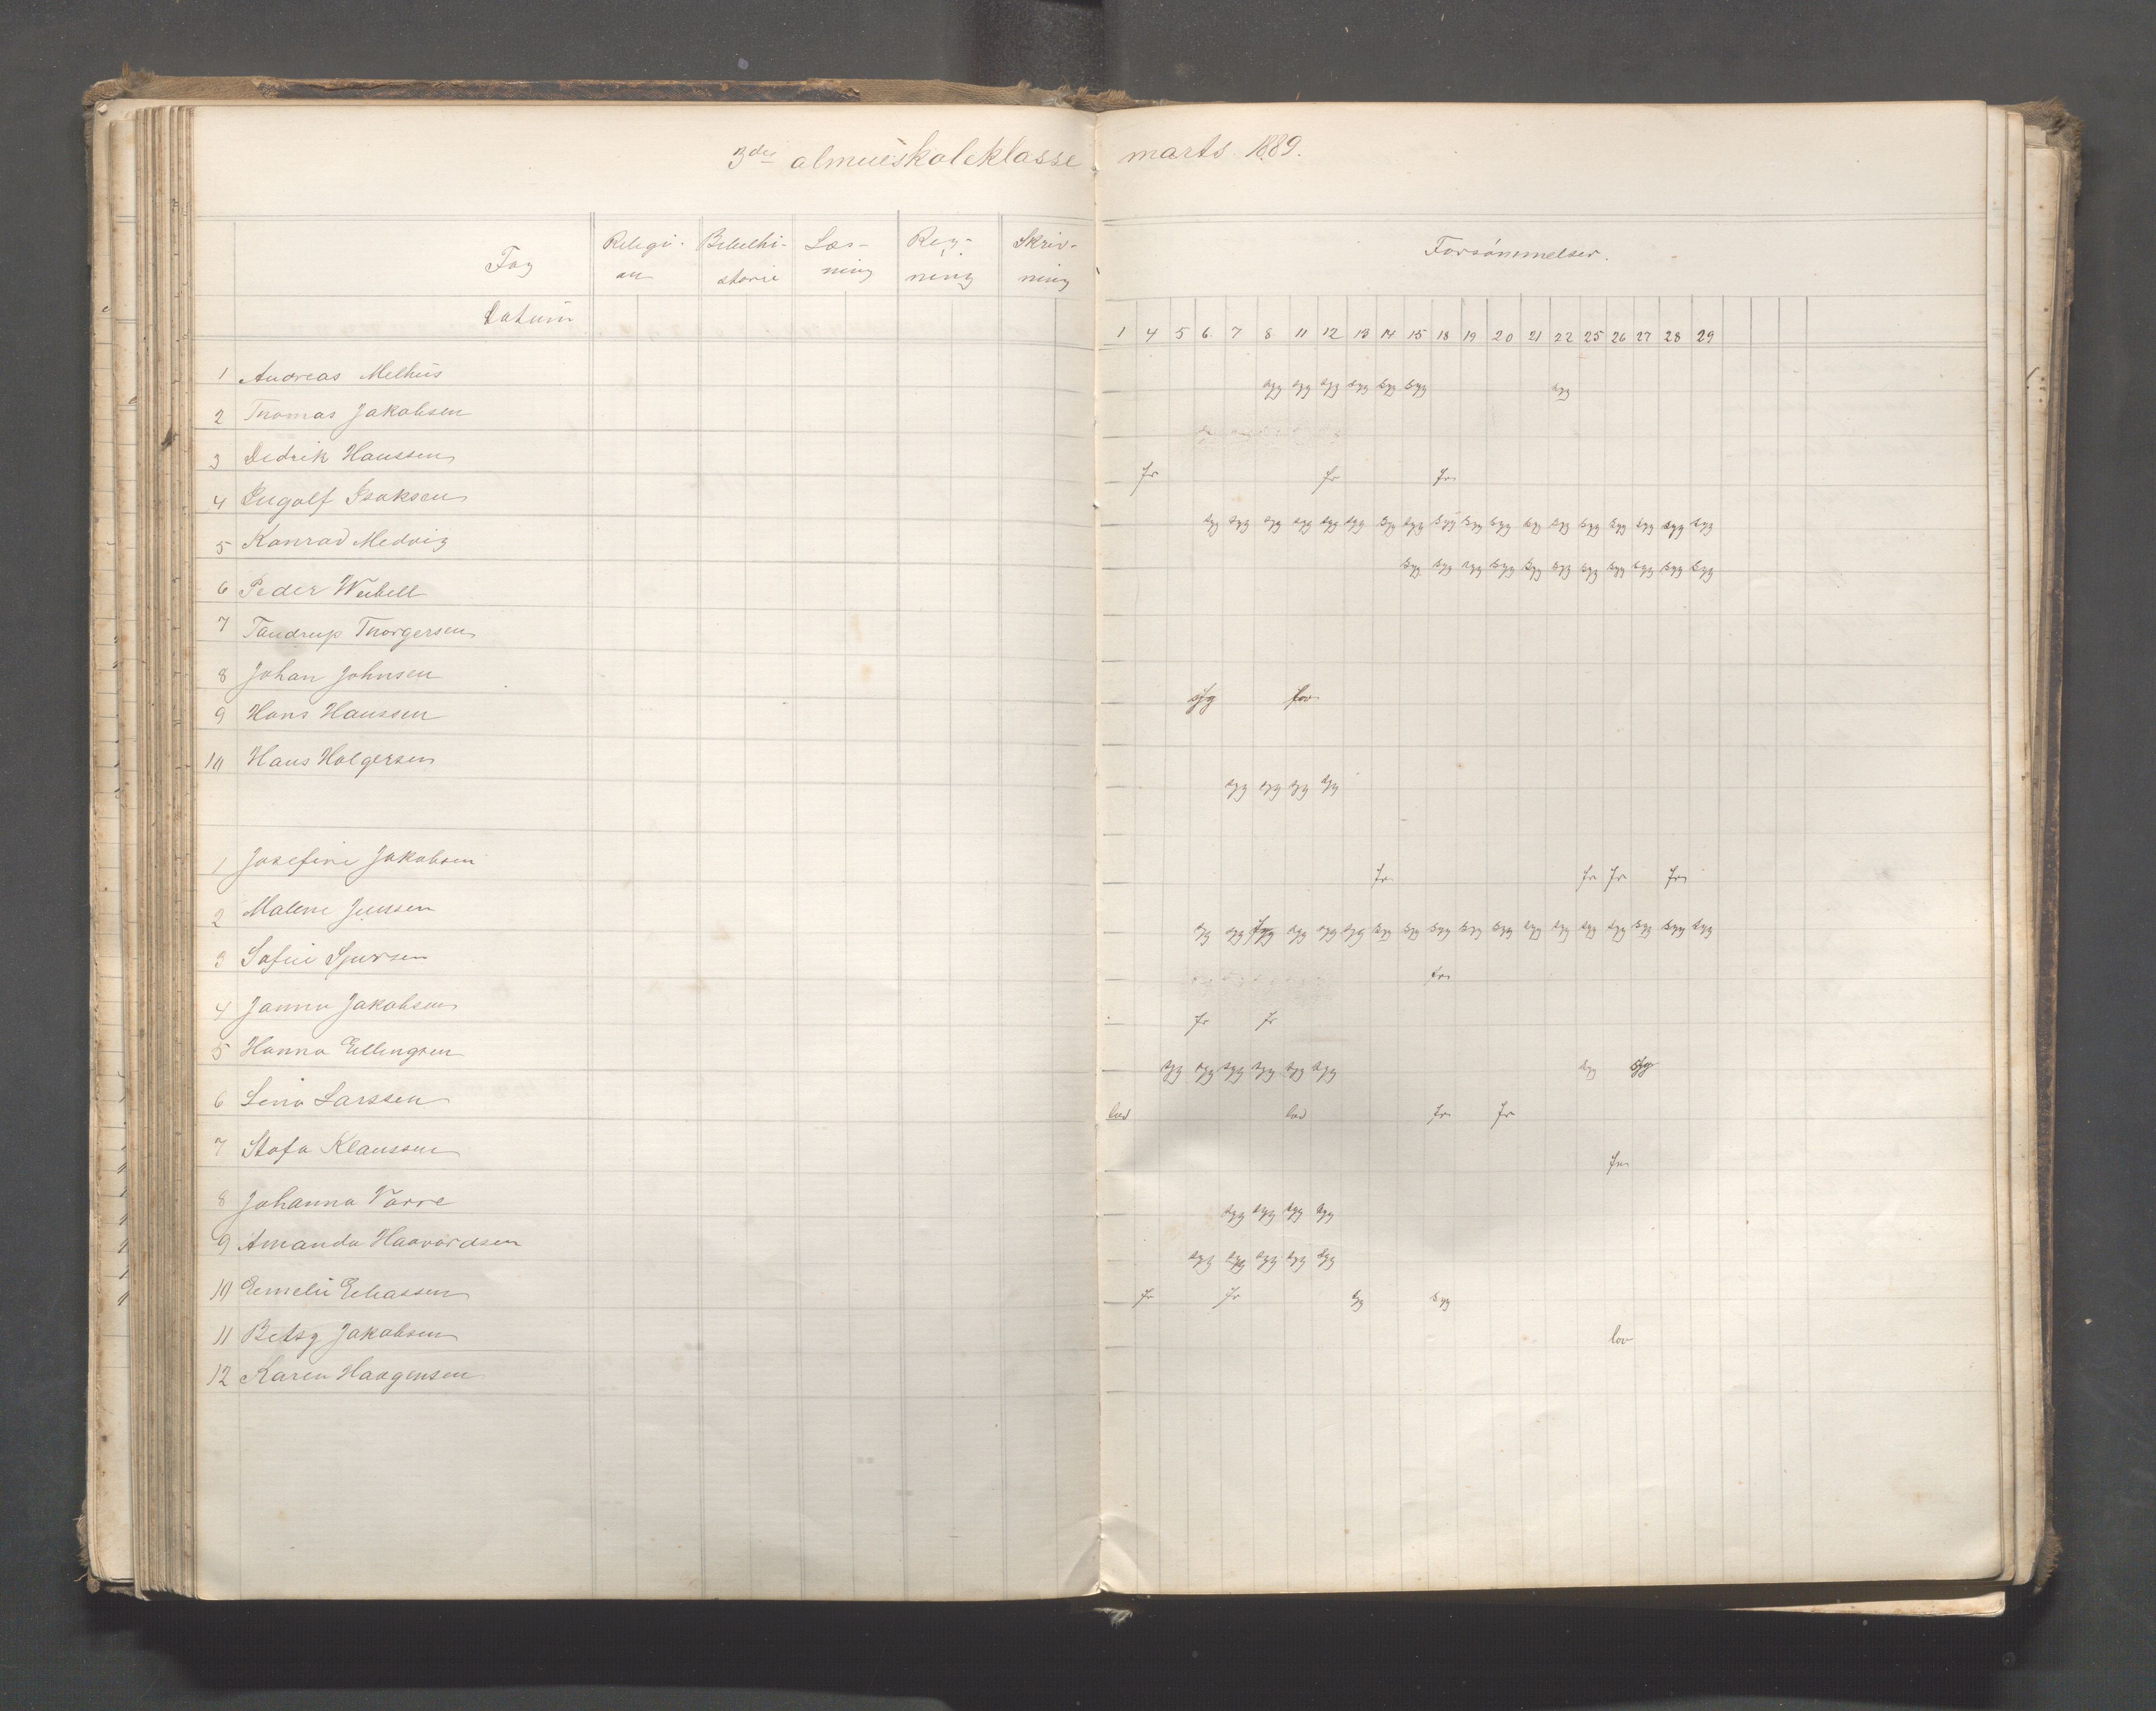 3die almueskoleklasse marts 1889.
Fag Religi- Bibelhi- Læs- Reg- Skriv- Forsømmelser.
on storie ning ning ning
Datum 1 4 5 6 7 8 11 12 13 14 15 18 19 20 21 22 25 26 27 28 29
1 Andreas Melhus syg syg syg syg syg syg syg
2 Thomas Jakobsen
3 Dedrik Hanssen fr fr fr
4 Ingolf Isaksen syg syg syg syg syg syg syg syg syg syg syg syg syg syg syg syg syg syg
5 Konrad Medvig syg syg syg syg syg syg syg syg syg syg syg
6 Peder Weibell
7 Tandrup Thorgersen
8 Johan Johnsen syg lov
9 Hans Hanssen
10 Hans Holgersen syg syg syg syg
1 Josefine Jakobsen fr fr fr fr
2 Malene Jenssen syg syg syg syg syg syg syg syg syg syg syg syg syg syg syg syg syg syg
3 Sofie Sjursen fr
4 Janna Jakobsen fr fr
5 Hanna Ellingsen syg syg syg syg syg syg syg syg
6 Lina Larssen lov lov fr fr
7 Stafa Klaussen fr
8 Johanna Varre syg syg syg syg
9 Amanda Haavardsen syg syg syg syg syg
10 Emelie Eliassen fr fr syg syg
11 Betsy Jakobsen lov
12 Karen Haagensen